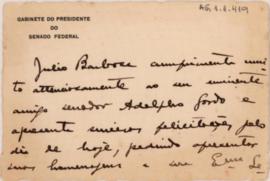 AG.1.1.419
GABINETE DO PRESIDENTE
DO
SENADO FEDERAL
Julio Barbosa cumprimenta mui
to attenciosamente ao seu eminente
amigo senador Adolpho Gordo e
apresenta sinceras felicitações pelo
dia de hoje, pedindo apresentar
suas homenagens a sua Exma Sra